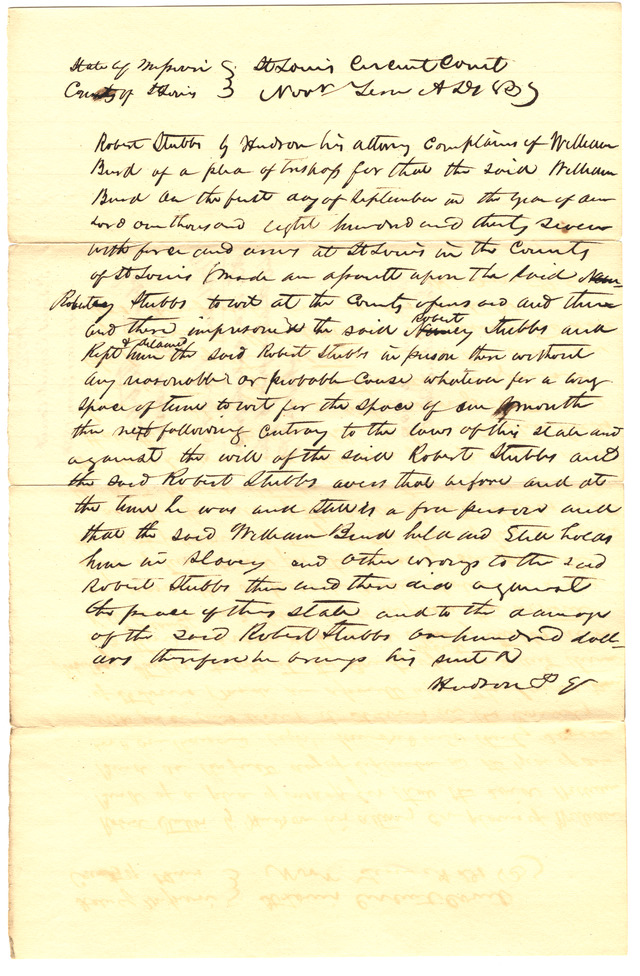 State of Missouri } St Louis Circuit Court
County of St Louis } Novr Term AD 1837
Robert Stubbs by Hudson his attorny Complains of William
Burd of a plea of trespass for that the said William
Burd on the first day of September in the year of our
Lord one thousand eight hundred and thirty seven
with force and arms at St Louis in the County
of St Louis made an assault upon the said
Robert Stubbs to wit at the County aforesaid and then
and there imprisoned the said Robert Stubbs and
Kept & detained him the said Robert Stubbs in prison then without
any reasonable or probable Cause whatever for a long
space of time to wit for the space of one month
then next following Contrary to the laws of this state and
against the will of the said Robert Stubbs and
the said Robert Stubbs avers that before and at
the time he was and still is a free person and
that the said William Burd held and Still holds
him in slavery and other wrongs to the said
Robert Stubbs then and there did against
the peace of this state and to the damage
of the said Robert Stubbs one hundred doll-
ars therefore he brings his suit &
Hudson P Q